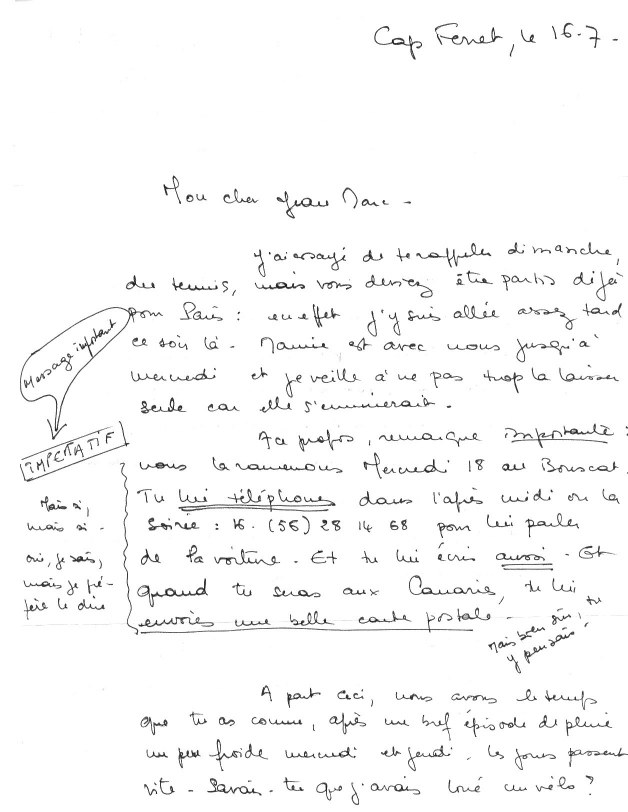 Cap Ferret, le 16.7-
Mon cher Jean Marc -
J'ai essayé de te rappeler dimanche,
du tennis, mais vous deviez être partis déjà
pour Paris : en effet j'y suis allée assez tard
ce soir là - Mamie est avec nous jusqu'à
mercredi et je veille à ne pas trop la laisser
seule car elle s'ennuierait.
Message important
IMPERATIF
A ce propos, remarque importante :
nous la ramenons Mercredi 18 au Bouscat.
Tu lui téléphones dans l'après midi ou la
soirée : 16. (56) 28 14 68 pour lui parler
de la voiture - Et tu lui écris aussi - Et
quand tu seras aux Canaries, tu lui
envoies une belle carte postale -
Mais si,
mais si -
oui, je sais,
mais je pré-
fère le dire
Mais bien sûr, tu
y pensais -
A part ceci, nous avons le temps
que tu as connu, après un bref épisode de pluie
un peu froide mercredi et jeudi. Les jours passent
vite - Savais-tu que j'avais loué un vélo ?